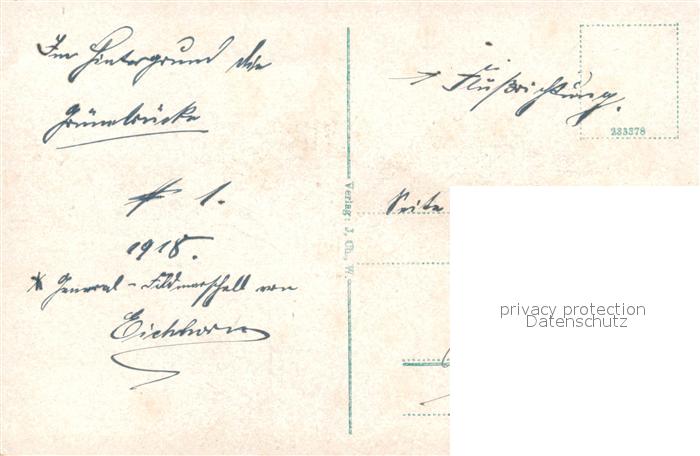 Im Hintergrund die
Grünebrücke
# 1.
1918.
* General-Feldmarschall von
Eichhorn
Verlag: J. Ch. W.
→ Flußrichtung.
233378
Seite
privacy protection
Datenschutz